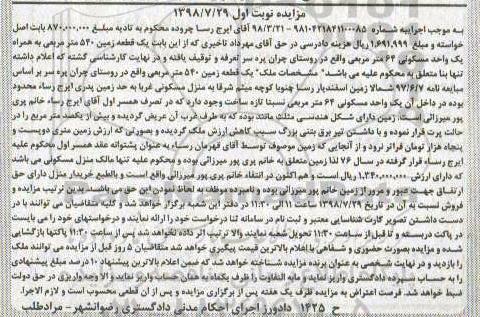 مزایده نوبت اول ۱۳۹۸/۷/۲۹
به موجب اجراییه شماره ۹۸۱۰۴۲۱۸۴۱۱۰۰۰۸۵ – ۹۸/۳/۲۱ آقای ایرج رسا چروده محکوم به تادیه مبلغ ۸۷۰,۰۰۰,۰۰۰ بابت اصل
خواسته و مبلغ ۱,۶۹۱,۹۹۹ ریال هزینه دادرسی در حق آقای مهرداد تاخیری که از این بابت یک قطعه زمین ۵۴۰ متر مربعی به همراه
یک واحد مسکونی ۶۴ متر مربعی واقع در روستای چران پره سر تعرفه و توقیف یافته و در نهایت کارشناسی گشته که اعلام داشته
تنها بنا متعلق به محکوم علیه می باشد" مشخصات ملک" یک قطعه زمین ۵۴۰ متر مربعی واقع در روستای چران پره سر بر اساس
مبایعه نامه ۹۷/۶/۷ شمالا زمین اسفندیار رسا جنوبا کوچه میثم شرقا به منزل مسکونی غربا به حد زمین پدری ایرج رساد محدود
بوده در داخل آن یک واحد مسکونی ۶۴ متر مربعی نسبتا تازه ساخت وجود دارد که در تصرف همسر اول آقای ایرج رساء خانم پری
پور میرزائی است. زمین دارای شکل هندسی مثلث مانند بوده که به طرف غرب آن عریض گردیده و بیش از یکصد متر مربع را در
حالت پرت قرار نموده و با داشتن تیر برق بتنی بزرگ سبب کاهش ارزش ملک گردیده و بصورتی که ارزش زمین متری دویست و
پنجاه هزار تومان فراتر نرود و از آنجایی که زمین موصوف توسط آقای قهرمان رساء به عنوان پشتوانه عقد همسر اول محکوم علیه
ایرج رساء قرار گرفته در سال ۷۶ لذا زمین متعلق به خانم پری پور میرزائی بوده و محکوم علیه تنها مالک منزل مسکونی می باشد
که دارای ارزش ۱,۳۴۰,۰۰۰,۰۰۰ ریال است و هم اکنون در انتفاء خانم پری پور میرزائی واقع است و بالطبع خریدار منزل دارای حق
ارتفاق جهت عبور و مرور از زمین خانم پور میرزائی بوده و نامبرده موظف به لحاظ نمودن این حق می باشد. بدین ترتیب مزایده و
فروش نسبت به آن در تاریخ ۱۳۹۸/۷/۲۹ ساعت ۱۱ الی ۱۱:۳۰ در دفتر این شعبه برگزار خواهد شد و کلیه متقاضیان می توانند با در
دست داشتن تصویر کارت شناسایی معتبر و ثبت نام در سامانه ثنا درخواست خود را ارائه نمایند و درخواستهای خود را می بایست
در پاکت دربسته و تا قبل از ساعت ۱۱:۳۰ تحویل شعبه نمایند والا ترتیب اثر داده نخواهد شد پس از ساعت ۱۱:۳۰ پاکتها بازگشایی
شده و مزایده بصورت حضوری و شفاهی با اعلام بالاترین قیمت پیگیری خواهد شد متقاضیان ۵ روز قبل از مزایده می توانند ملک
را بازدید و در نهایت شخصی به عنوان برنده مزایده شناخته خواهد شد که ضمن اعلام بالاترین پیشنهاد ۱۰ درصد مبلغ پیشنهادی
را به حساب سپرده دادگستری واریز نماید و مابه التفاوت را ظرف یکماه به همان حساب واریز نماید و الا وجه واریزی در حق دولت
ضبط خواهد شد. فرصت اعتراض به مزایده ظرف یک هفته پس از برگزاری مزایده و پس از آن قطعی محسوب است و لازم الاجرا.
ح ۱۴۲۵ دادورز اجرای احکام مدنی دادگستری رضوانشهر – مرادطلب